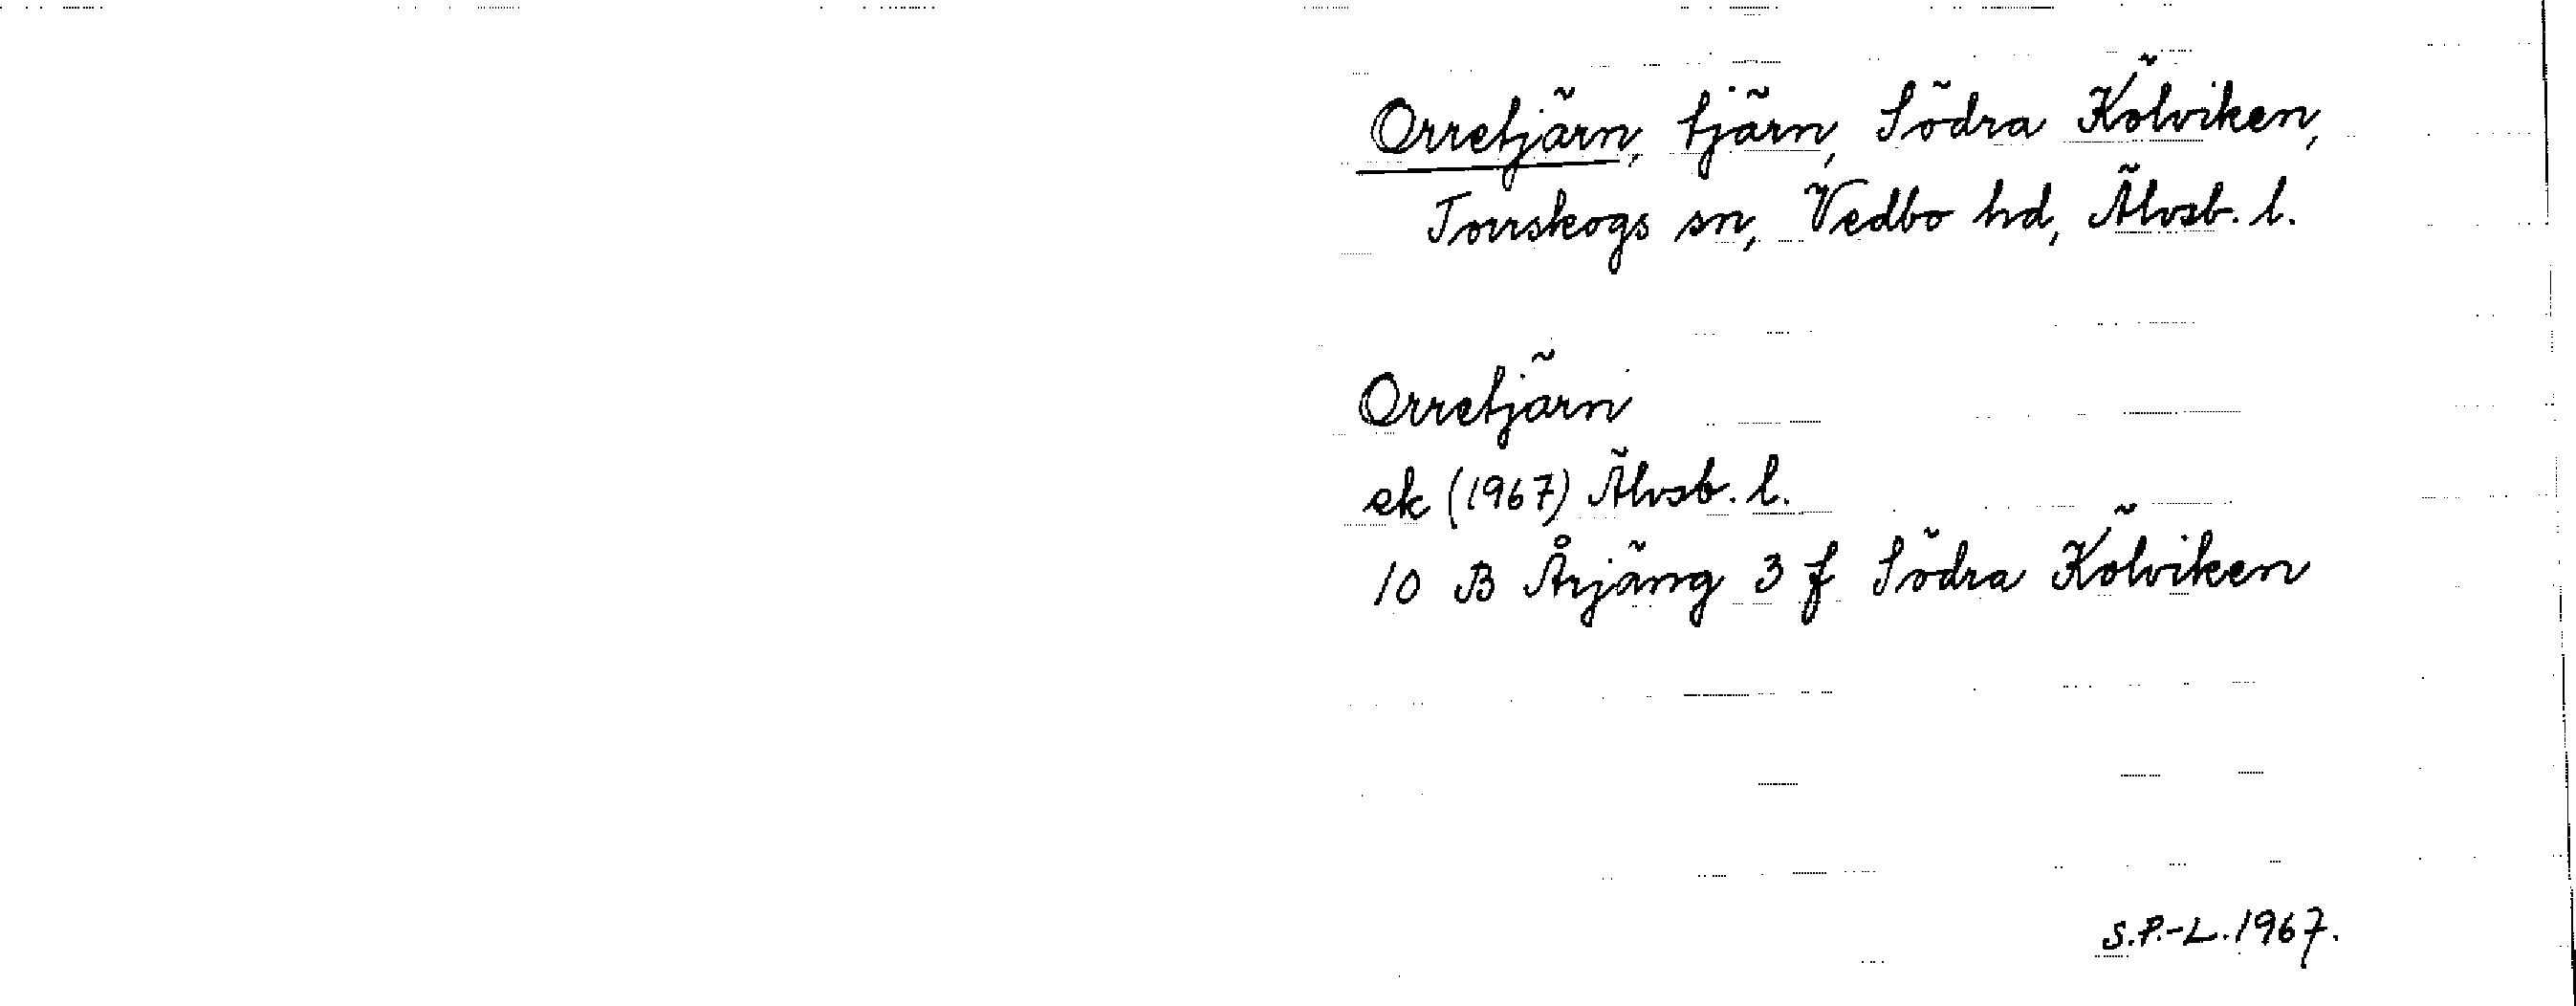 Orretjärn, tjärn, Södra Kölviken,
Torrskogs sn, Vedbo hd, Älvsb. l.
Orretjärn
ek (1967) Älvsb. l.
10 B Årjäng 3 f Södra Kölviken
S.P.-L. 1967.